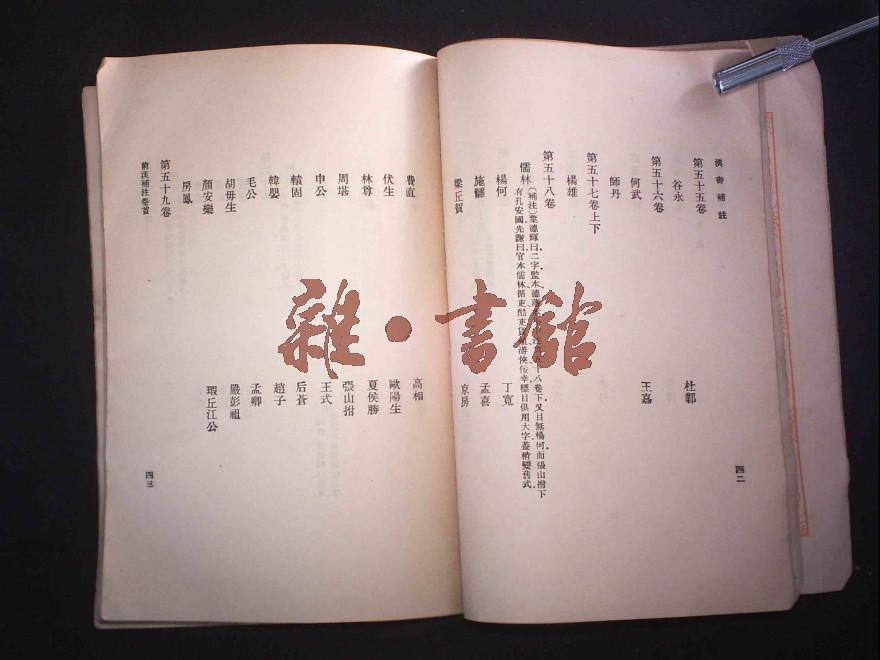 漢書補註
第五十五卷
谷永 杜鄴
第五十六卷
何武 王嘉
師丹
第五十七卷上下
楊雄
第五十八卷
儒林
〔補注〕葉德輝曰二字監本德藩本 五十八卷下又目無楊何而張山拊下
有孔安國先謙曰官本儒林循吏酷吏貨殖游俠佞幸標目俱用大字蓋稍變舊式
楊何 丁寬
施讎 孟喜
梁丘賀 京房
四二
費直 高相
伏生 歐陽生
林尊 夏侯勝
周堪 張山拊
申公 王式
轅固 后蒼
韓嬰 趙子
毛公 孟卿
胡毋生 嚴彭祖
顏安樂 瑕丘江公
房鳳
第五十九卷
前漢補注卷首
四三
雜·書館